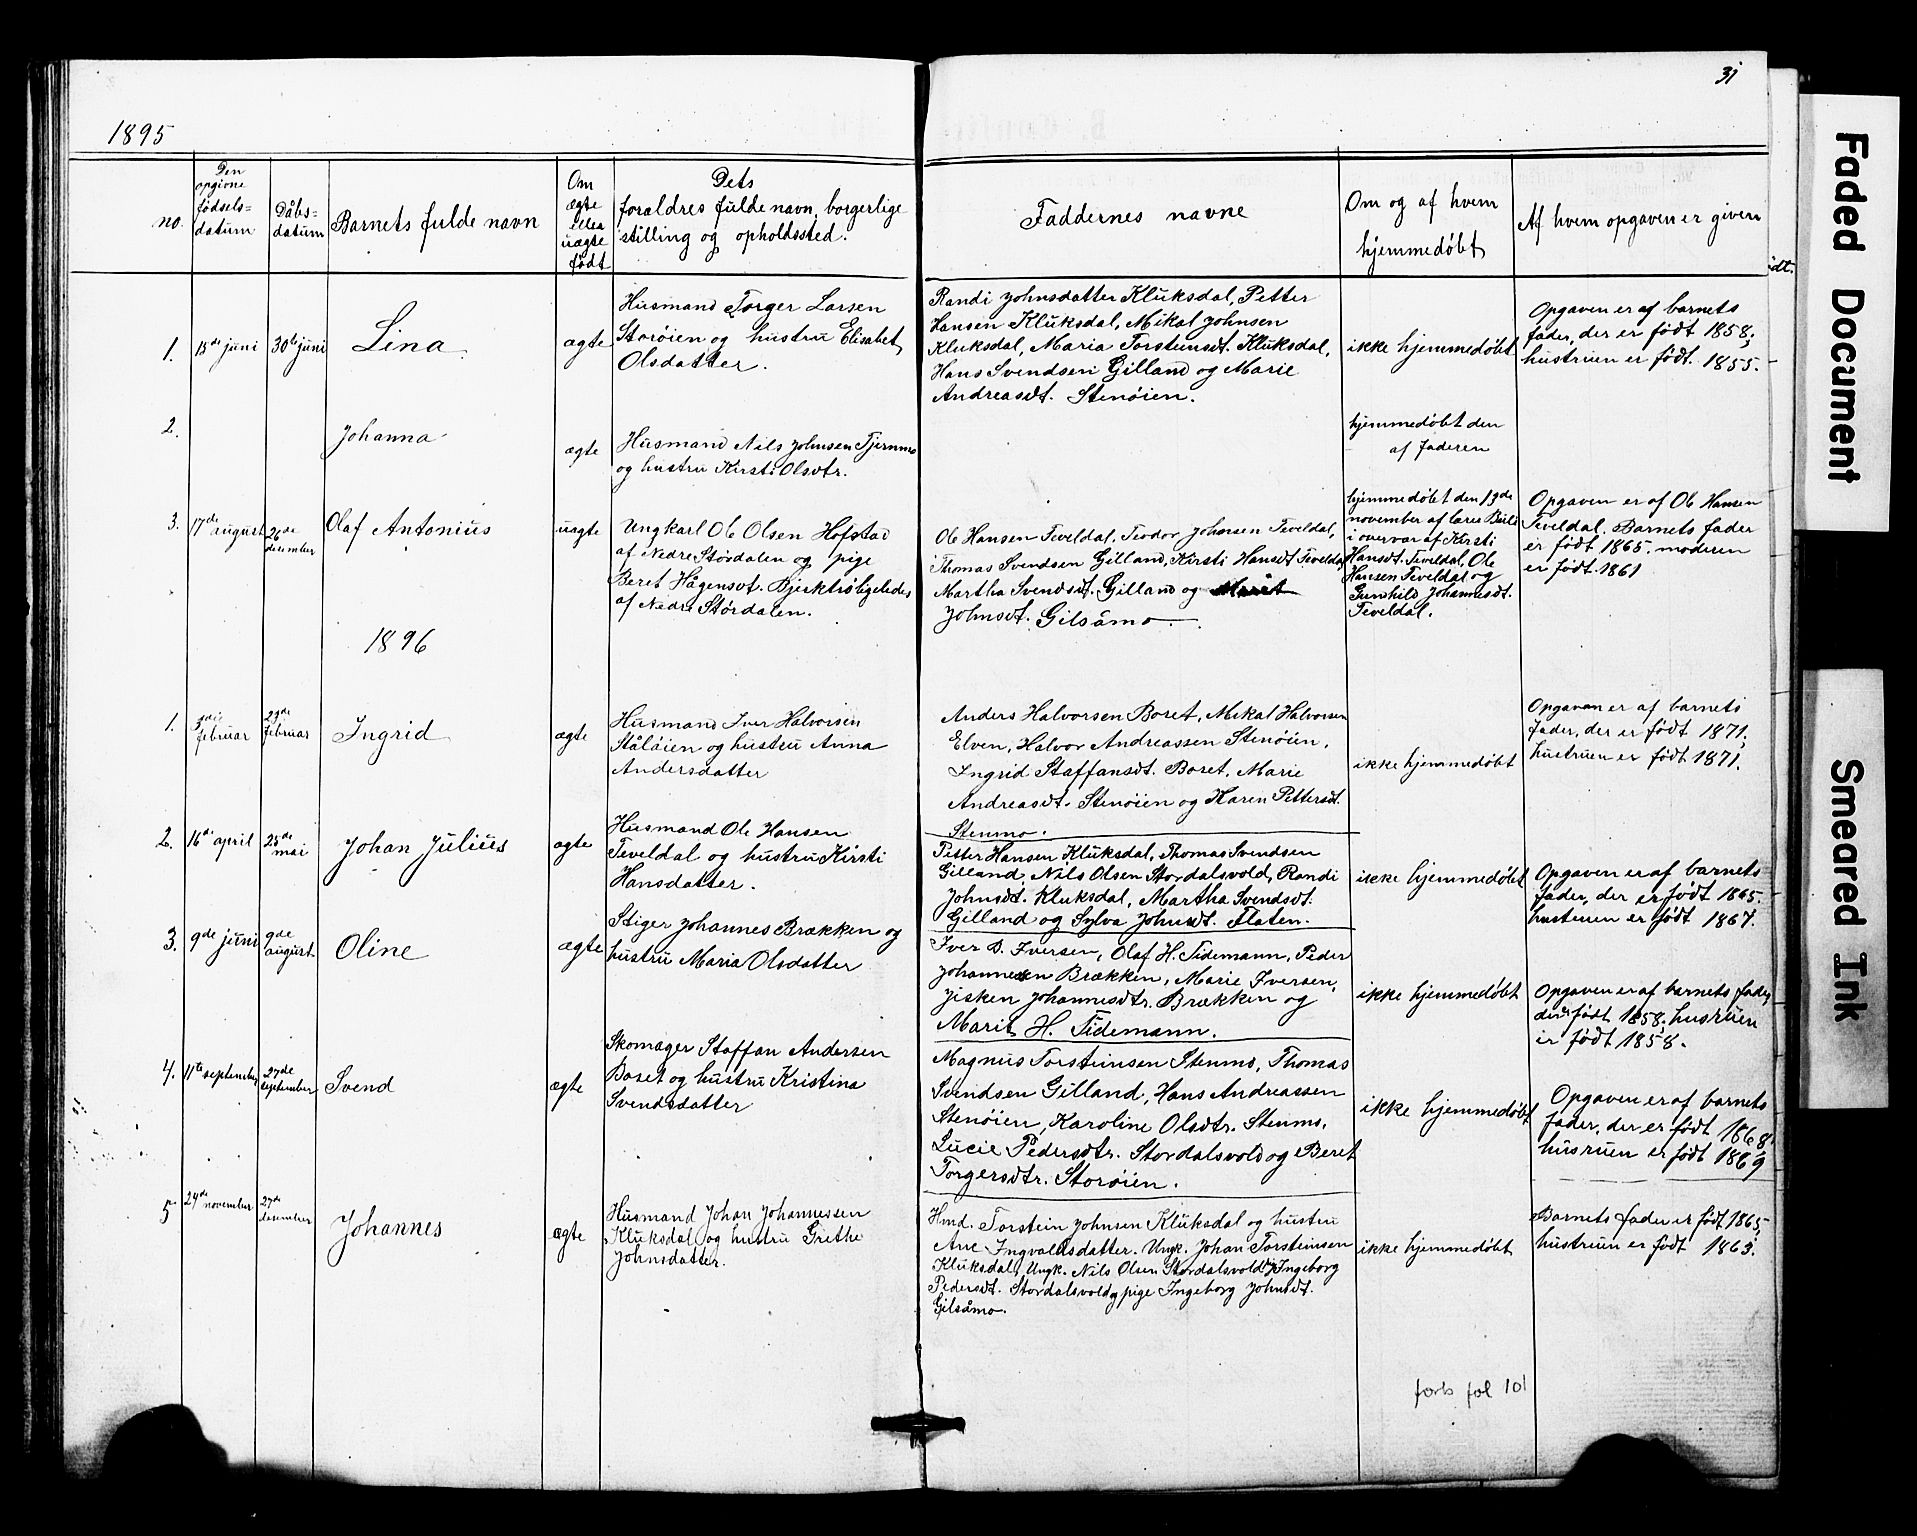 31
1895
no.
Den
opgivne
fødsels=
datum
Dåbs=
datum
Barnets fulde navn
Om
ægte
eller
uægte
født
Dets
foraldres fulde navn, borgerlige
stilling og opholdssted.
Faddernes navne
Om og af hvem
hjemmedøbt
Af hvem opgaven er given
1.
15de juni
30te juni
Lina
ægte
Husmand Torger Larsen
Storøien og hustru Elisabet
Olsdatter.
Randi Johnsdatter Kluksdal, Petter
Hansen Kluksdal, Mikal Johnsen
Kluksdal, Maria Torsteinsdt. Kluksdal,
Hans Svendsen Gilland og Marie
Andreasdt. Stenøien.
ikke hjemmedøbt
Opgaven er af barnets
fader, der er født 1858;
hustruen er født. 1855.
2.
Johanna
ægte
Husmand Nils Johnsen Tjernmo
og hustru Kirsti Olsdtr.
hjemmedøbt den
af faderen
3.
17de august
26de
desember
Olaf Antonius
uægte
Ungkarl Ole Olsen Hofstad
af Nedre Størdalen og pige
Beret Hågensdt. ligeledes
af Nedre Størdalen.
Ole Hansen Teveldal, Teodor Johnsen Teveldal,
Thomas Svendsen Gilland, Kirsti Hansdt Teveldal
Martha Svendsdt. Gilland og Marit
Johnsdt. Gilsåmo.
hjemmedøbt den 19de
november af
i overvær af Kirsti
Hansdt. Teveldal, Ole
Hansen Teveldal og
Gunhild Johannesdt.
Teveldal.
Opgaven er af Ole Hansen
Teveldal. Barnets fader
er født 1865. moderen
er født. 1861
1896
1.
3die
februar
23de
februar
Ingrid
ægte
Husmand Iver Halvorsen
Ståløien og hustru Anna
Andersdatter
Anders Halvorsen Boset, Mikal Halvorsen
Elven, Halvor Andreassen Stenøien,
Ingrid Staffansdt. Boset, Marie
Andreasdt. Stenøien og Karen Pettersdt.
Stenmo.
ikke hjemmedøbt
Opgaven er af barnets
fader, der er født 1871;
hustruen er født 1871.
2.
16de april
25de
mai
Johan Julius
ægte
Husmand Ole Hansen
Teveldal og hustru Kirsti
Hansdatter.
Petter Hansen Kluksdal, Thomas Svendsen
Gilland Nils Olsen Stordalsvold, Randi
Johnsdt. Kluksdal, Martha Svendsdt.
Gilland og Sylva Johnsdt. Flaten.
ikke hjemmedøbt
Opgaven er af barnets
fader, der er født 1865.
hustruen er født 1867.
3.
9de juni
9de
august
Oline
ægte
Stiger Johannes Brækken og
hustru Maria Olsdatter
Iver B. Iversen, Olaf H. Tidemann, Peder
Johannesen Brækken, Marie Iversen,
Jisken Johannesdtr. Brækken og
Marit H. Tidemann.
ikke hjemmedøbt
Opgaven er af barnets fader,
der født 1858; husruen
er født 1858.
4.
11te september
27de
september
Svend
ægte
Skomager Staffan Andersen
Boset og hustru Kristina
Svendsdatter
Magnus Torsteinsen Stenmo, Thomas
Svendsen Gilland, Hans Andreassen
Stenøien, Karoline Olsdtr. Stenmo,
Lucie Pedersdtr. Stordalsvold og Beret
Torgersdtr. Storøien.
ikke hjemmedøbt
Opgaven er af barnets
fader, der er født 1868;
husruen er født 1869
5
24de november
27de
desember
Johannes
ægte
Husmand Johan Johannessen
Kluksdal og hustru Grethe
Johnsdatter.
Hmd. Torstein Johnsen Kluksdal og hustru
Ane Ingvaldsdatter. Ungk. Johan Torsteinsen
Kluksdal, Ungk. Nils Olsen Stordalsvold og Ingeborg
Pedersdt. Stordalsvold og pige Ingeborg Johnsdt.
Gilsåmo.
ikke hjemmedøbt
Barnets fader er født 1865;
hustruen er født 1863.
forts fol 101
ødt.
Faded Document
Smeared Ink